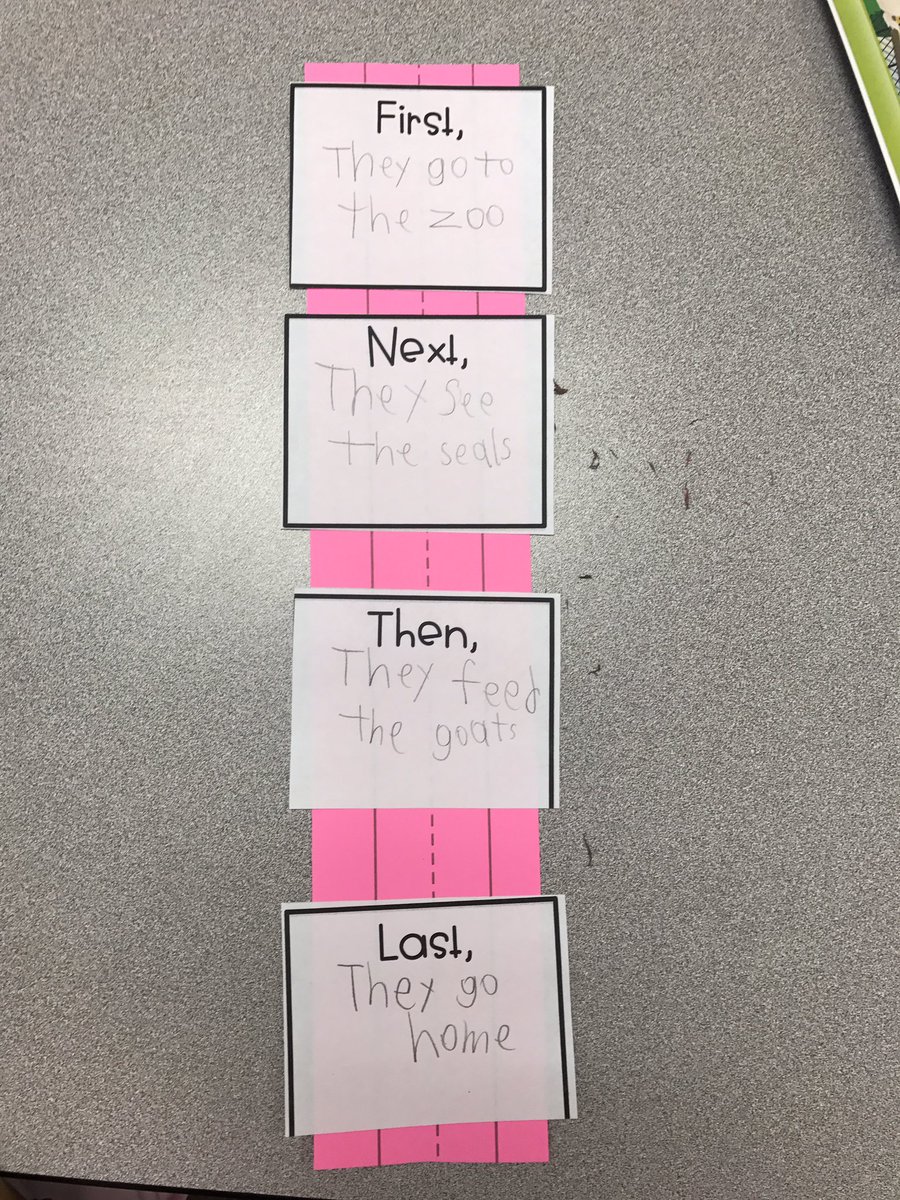 First,
They go to
the zoo
Next,
They see
the seals
Then,
They feed
the goats
Last,
They go
home